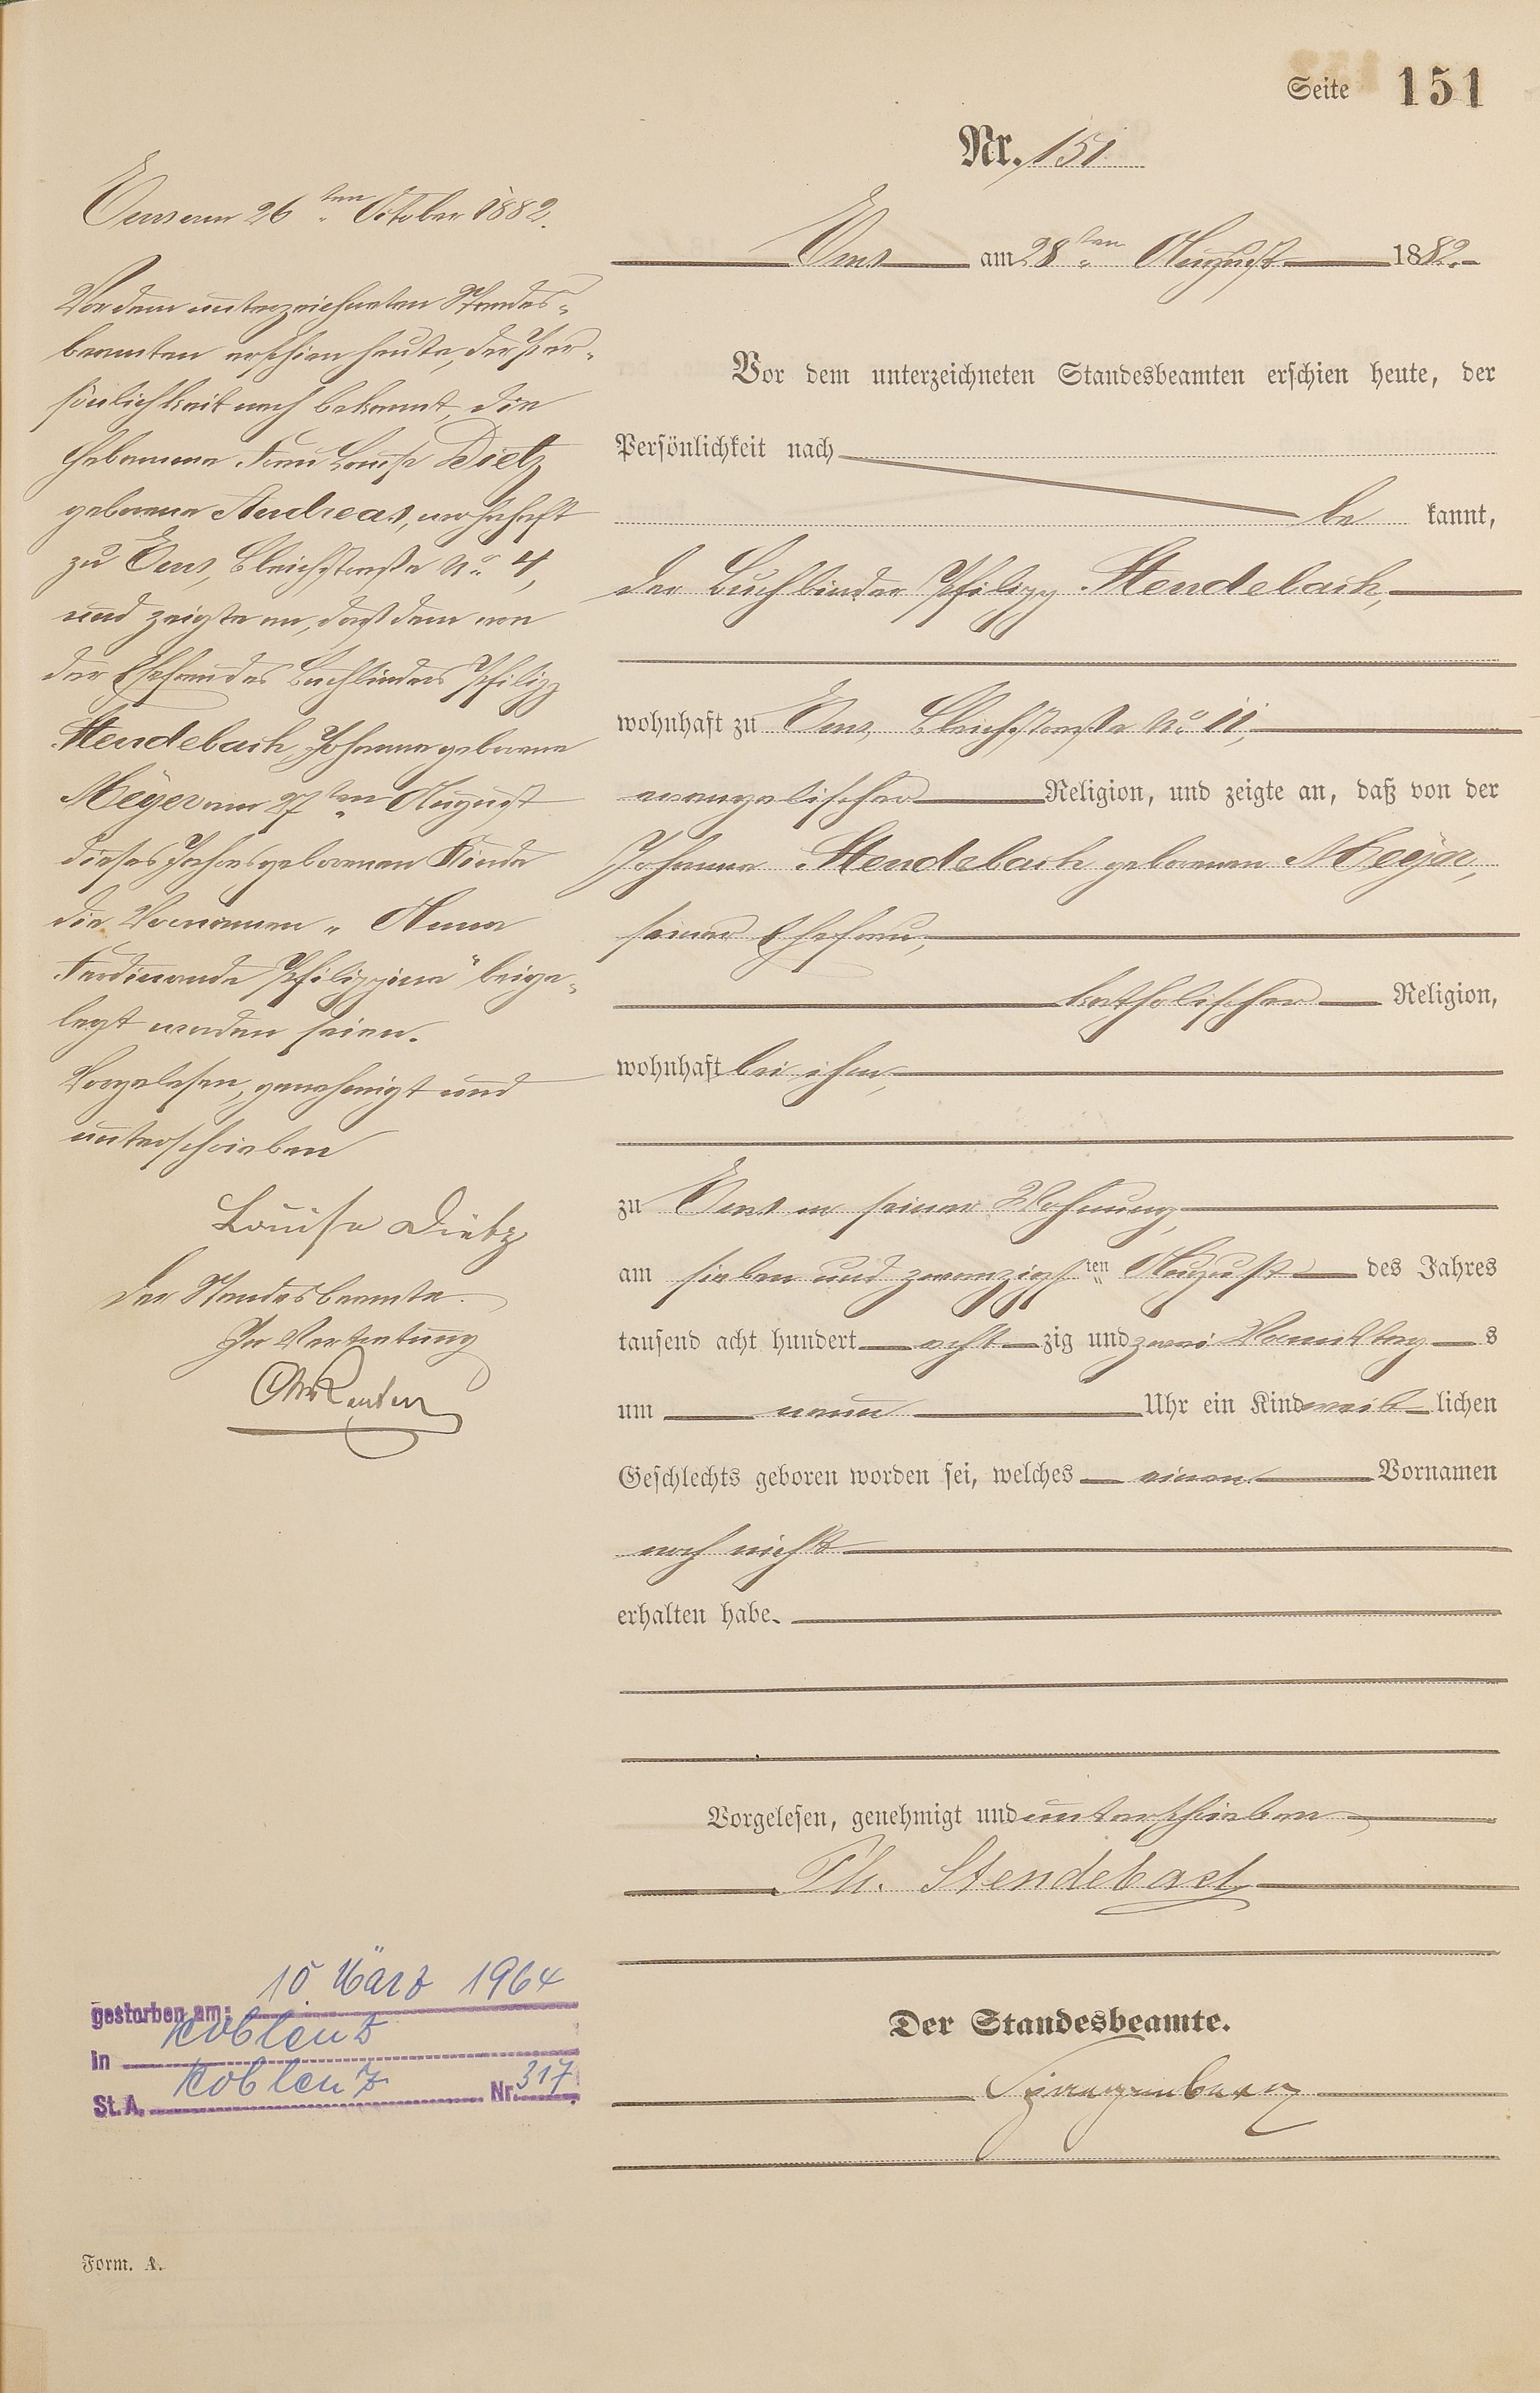 Seite 151
Nr. 151
Ems am 28ten August 1882.
Vor dem unterzeichneten Standesbeamten erschien heute, der
Persönlichkeit nach
be kannt,
der Buchbinder Philipp Stendebach,
wohnhaft zu Ems, Bleichstraße No 11,
evangelischer Religion, und zeigte an, daß von der
Johanna Stendebach geborenen Meyer,
seiner Ehefrau,
katholischer Religion,
wohnhaft bei ihm,
zu Ems in seiner Wohnung,
am sieben und zwanzigsten August des Jahres
tausend acht hundert acht zig und zwei Vormittag s
um neun Uhr ein Kind weib lichen
Geschlechts geboren worden sei, welches einen Vornamen
noch nicht
erhalten habe.
Vorgelesen, genehmigt und unterschrieben
Ph. Stendebach
Der Standesbeamte.
Spangenberg
Ems am 26ten October 1882.
Vor dem unterzeichneten Standes-
beamten erschien heute, der Per-
sönlichkeit nach bekannt, die
Hebamme Frau Louise Dietz
geborene Andreas, wohnhaft
zu Ems, Bleichstraße No 4,
und zeigte an, daß dem von
der Ehefrau des Buchbinders Philipp
Stendebach, Johanna geborene
Meyer am 27ten August
dieses Jahres geborenen Kinde
die Vornamen „Anna
Ferdinande Philippine" beige-
legt worden seien.
Vorgelesen, genehmigt und
unterschrieben
Louise Dietz
Der Standesbeamte.
In Vertretung
gestorben am: 10. März 1964
in Koblenz
St. A. Koblenz Nr. 317
Form. A.